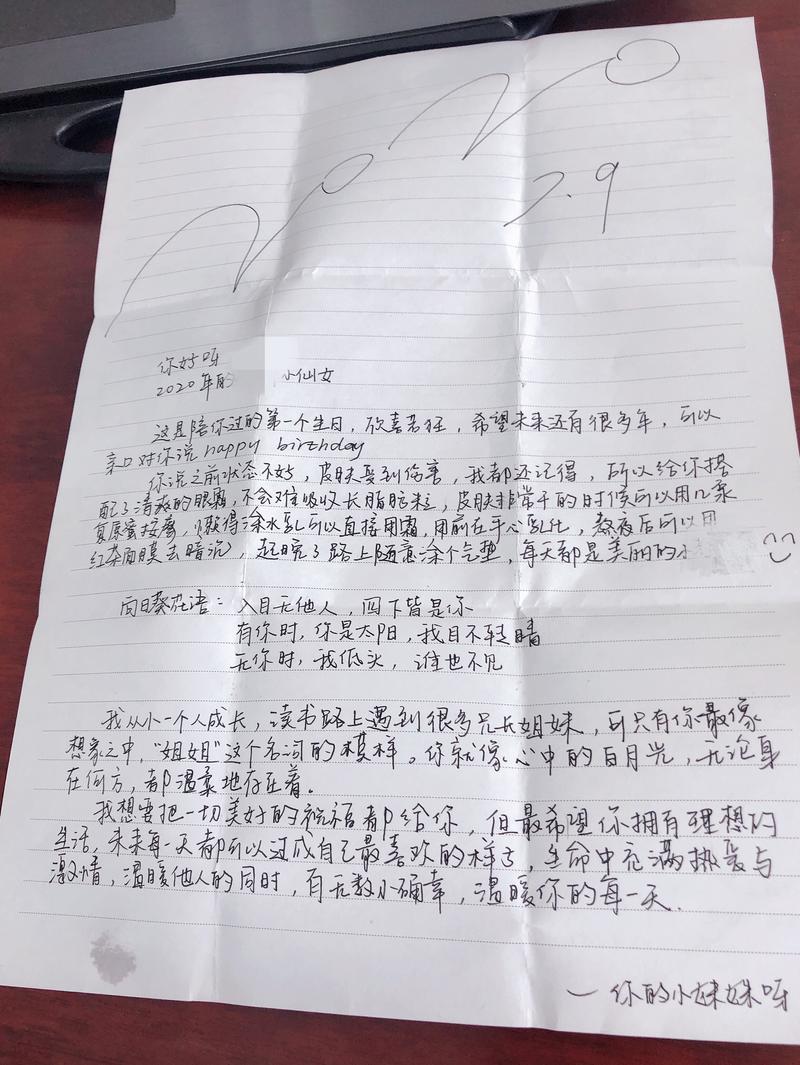 2020
7.9
你好呀
2020年的 小仙女
这是陪你过的第一个生日，欣喜若狂，希望未来还有很多年，可以
亲口对你说 happy birthday
你说之前状态不好，皮肤受到伤害，我都还记得，所以给你搭
配了清爽的眼霜，不会难吸收长脂肪粒，皮肤非常干的时候可以用几泵
复原蜜按摩，懒得涂水乳可以直接用霜，用前在手心乳化，熬夜后可以用
红茶面膜去暗沉，起晚了路上随意涂个气垫，每天都是美丽的小
向日葵花语：入目无他人，四下皆是你
有你时，你是太阳，我目不转睛
无你时，我低头，谁也不见
我从小一个人成长，读书路上遇到很多兄长姐妹，可只有你最像
想象之中，“姐姐”这个名词的模样。你就像心中的白月光，无论身
在何方，都温柔地存在着。
我想要把一切美好的祝福都给你，但最希望你拥有理想的
生活，未来每一天都可以过成自己最喜欢的样子，生命中充满热爱与
激情，温暖他人的同时，有无数小确幸，温暖你的每一天.
—你的小妹妹呀